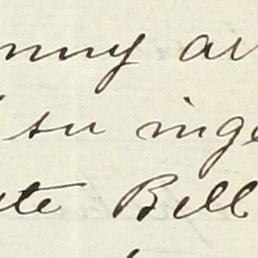 nny av
su inge
te Bell